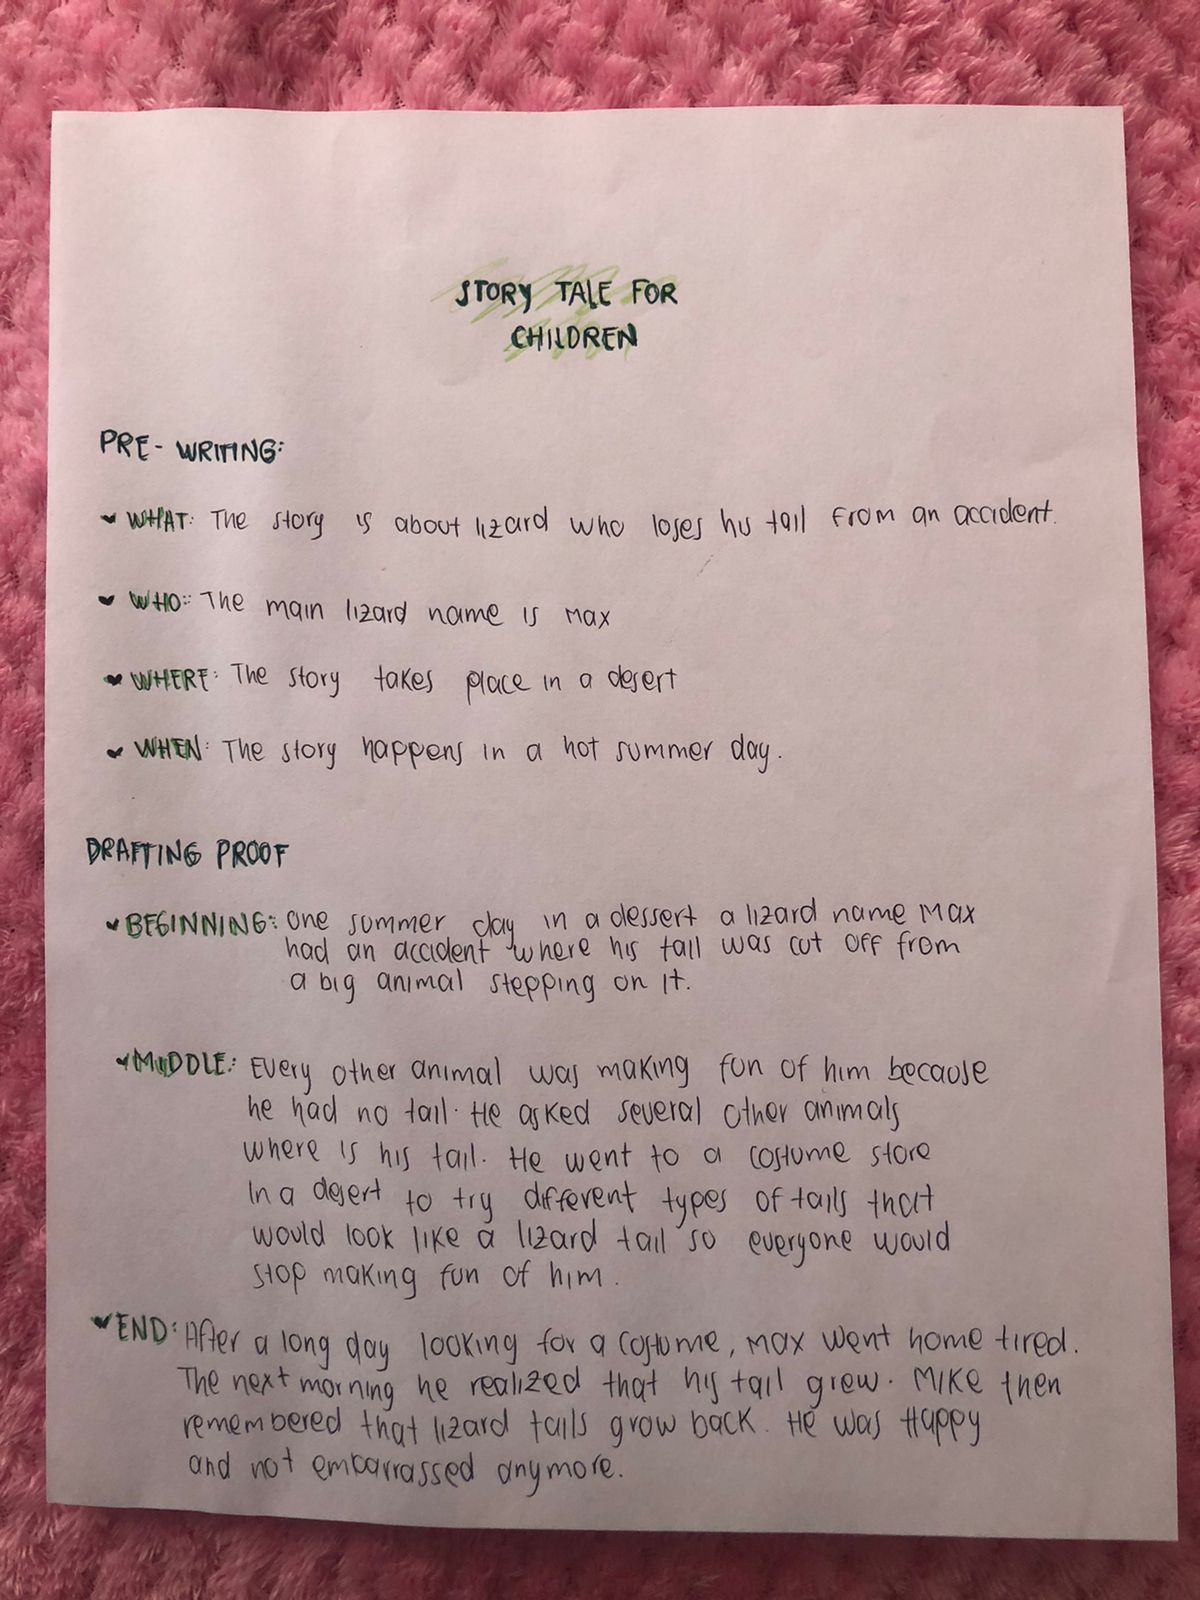 STORY TALE FOR
CHILDREN
PRE-WRITING:
WHAT: The story is about lizard who loses his tail from an accident.
WHO: The main lizard name is Max
WHERE: The story takes place in a desert
WHEN: The story happens in a hot summer day.
DRAFTING PROOF
BEGINNING: One summer day in a dessert a lizard name Max
had an accident where his tail was cut off from
a big animal stepping on it.
MIDDLE: Every other animal was making fun of him because
he had no tail. He asked several other animals
where is his tail. He went to a costume store
in a desert to try different types of tails that
would look like a lizard tail so everyone would
stop making fun of him.
END: After a long day looking for a costume, Max went home tired.
The next morning he realized that his tail grew. Mike then
remembered that lizard tails grow back. He was Happy
and not embarrassed anymore.